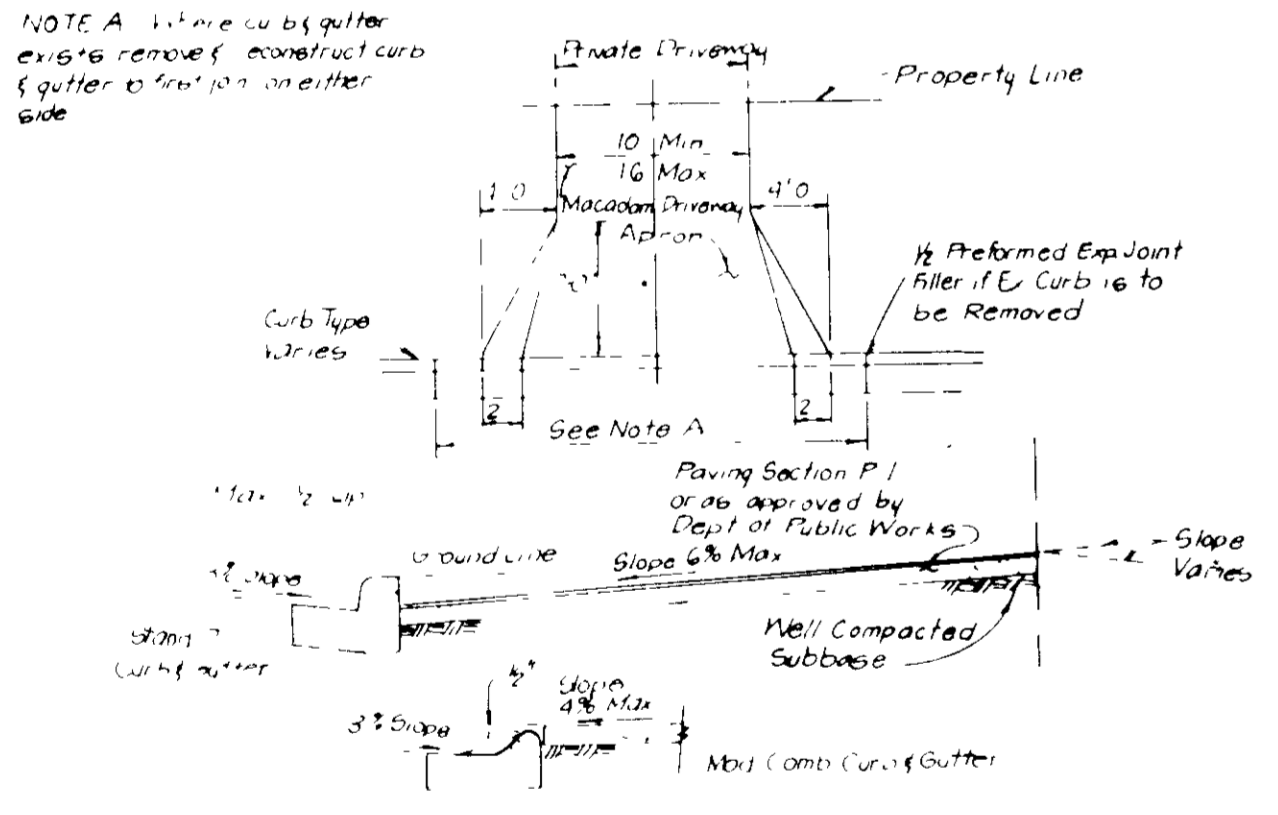 NOTE A cu b & gutter
remove & econstruct curb
& gutter on either
side
Private Driveway
Property Line
10 Min
16 Max
4'0
Macadam Driveway
Apron
1/2 Preformed Exp Joint
Filler if Ex Curb is to
be Removed
Curb Type
Varies
2
2
See Note A
Paving Section P 1
or as approved by
Dept of Public Works
Slope 6% Max
Slope
Varies
Slope
Well Compacted
Subbase
Slope
4% Max
3% Slope
Comb & Gutter